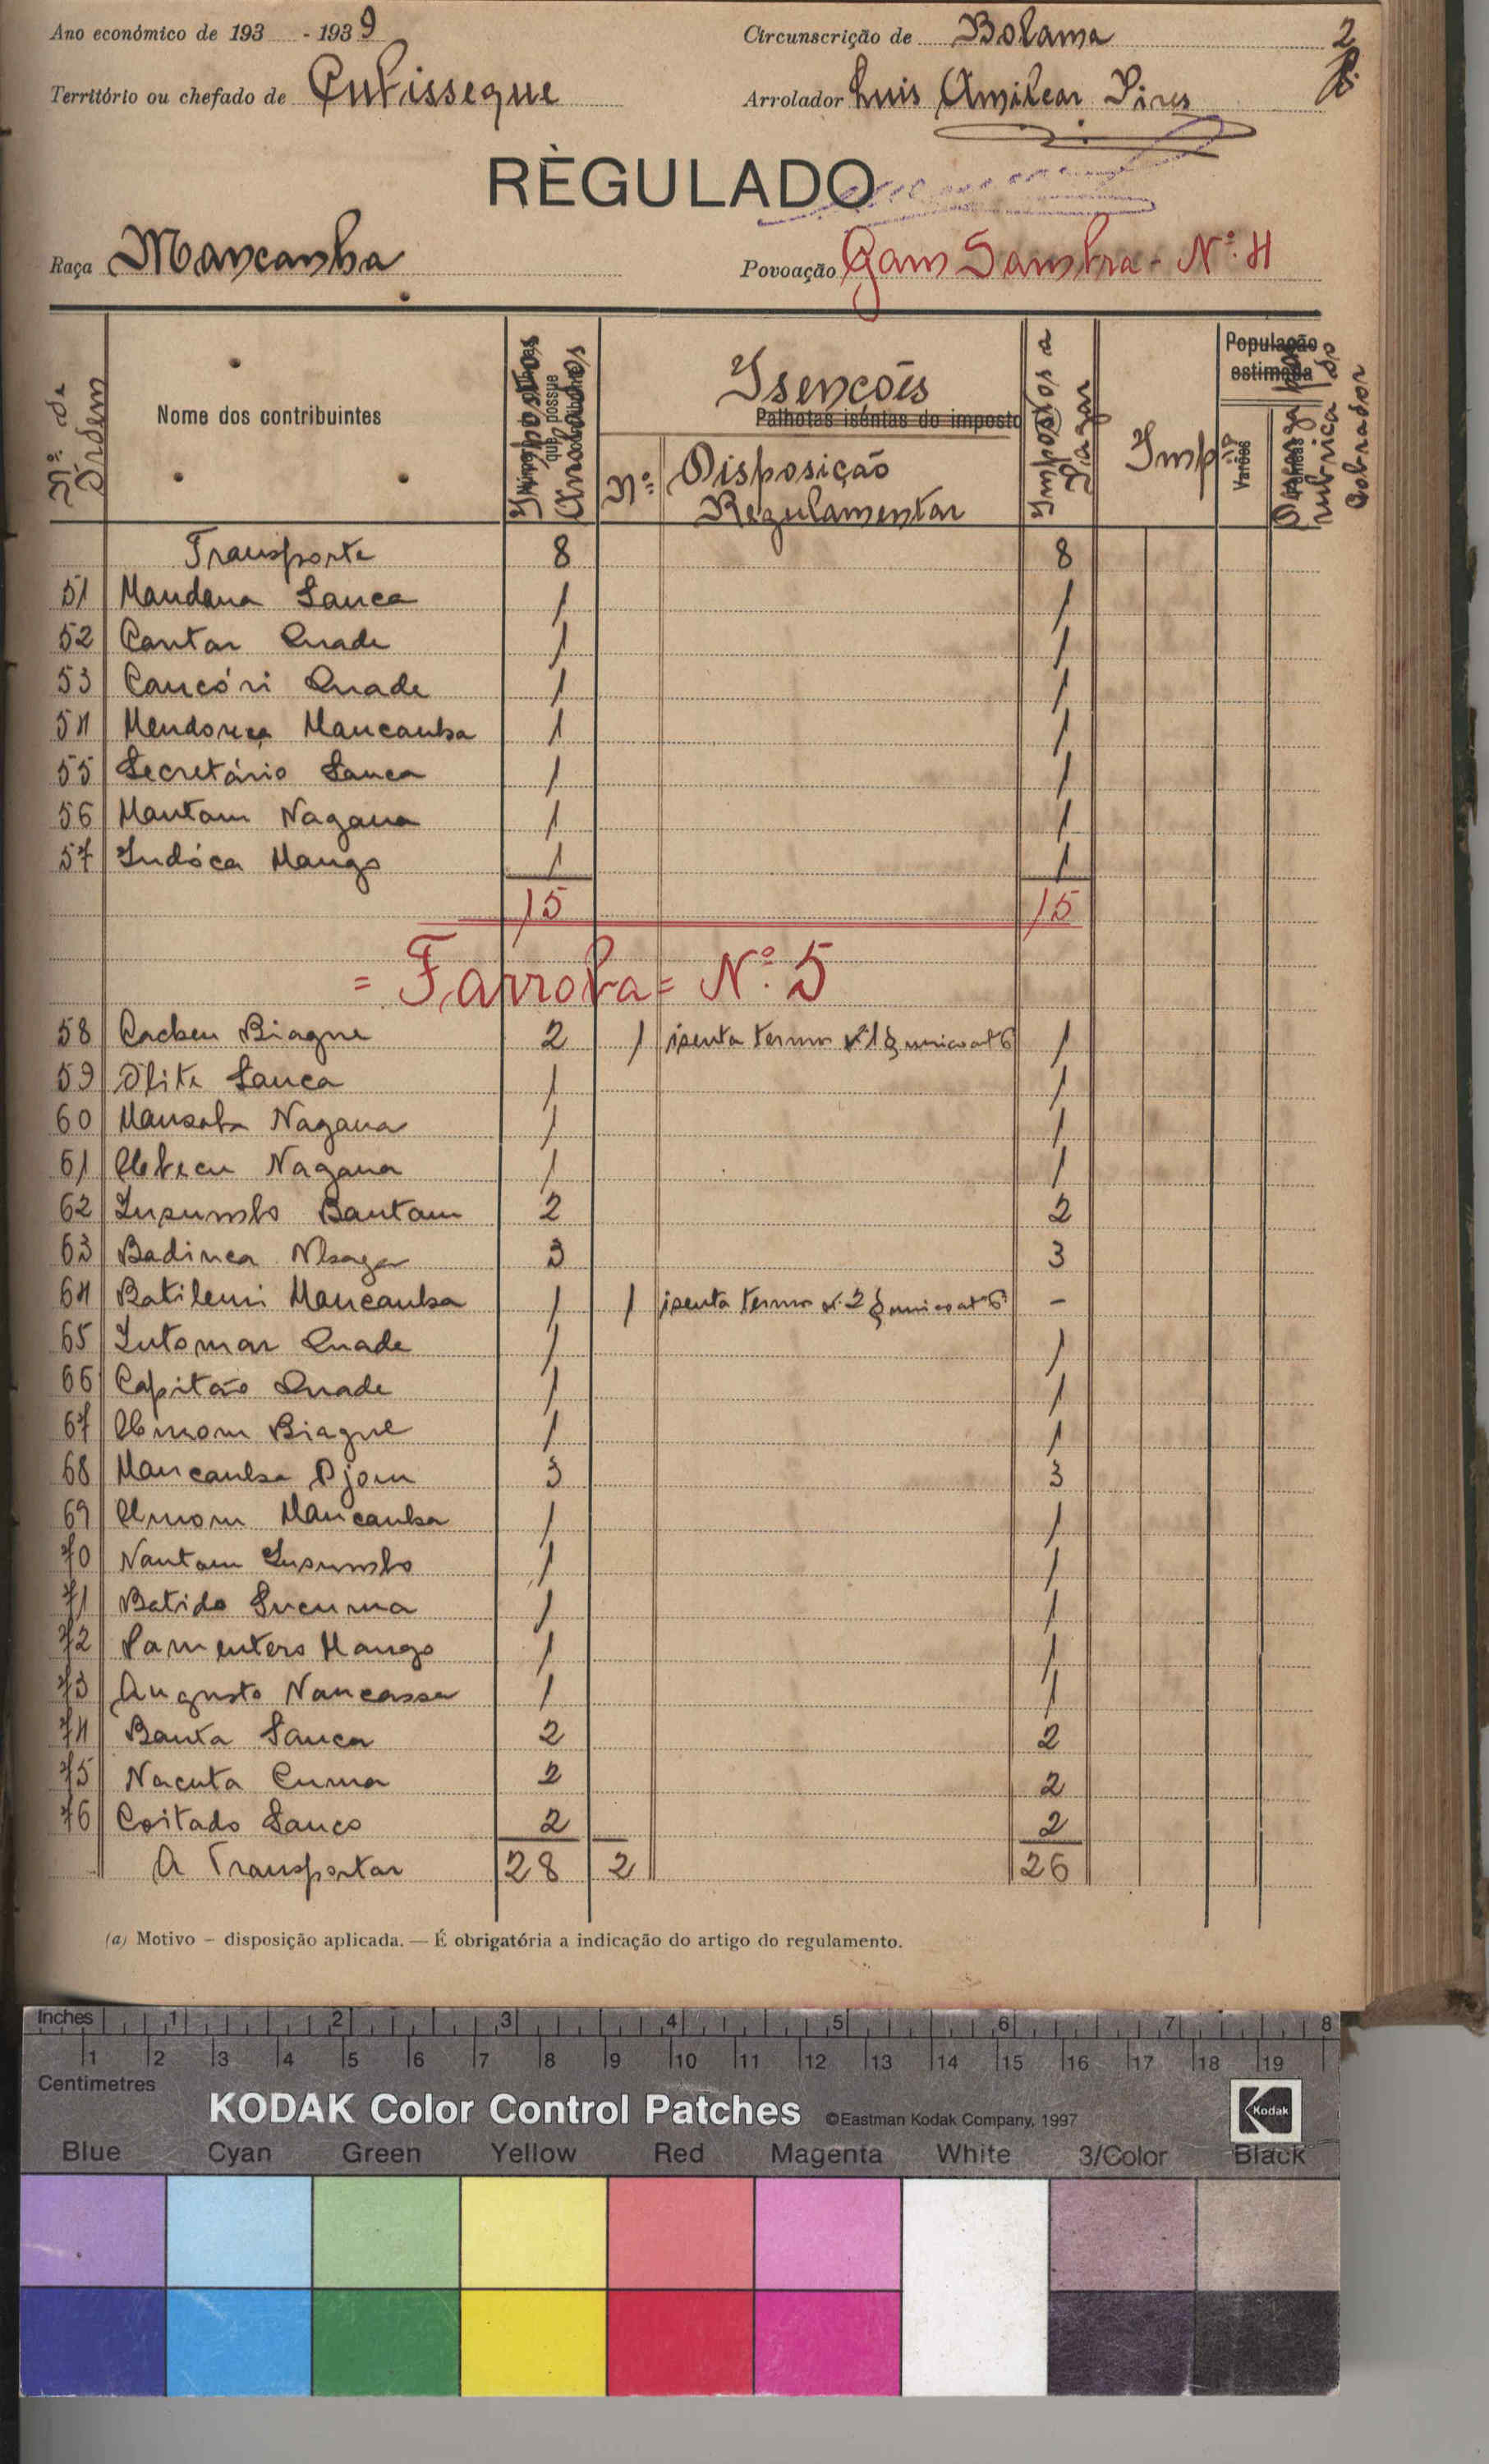 Ano económico de 193 - 1939 Circunscrição de Bolama 2
Território ou chefado de Cubisseque Arrolador Luis Amilcar Pires
RÈGULADO
Raça Mancanha Povoação Gam Sambra - Nº. 4
Nº. de Ordem Nome dos contribuintes Impostos Arrolados Isencões Palhotas iséntas do imposto Nº. Disposição Regulamentar Impostos a Pagar Imp População estimada Varões rubrica do Cobrador
Transporte 8 8
51 Mandana Sanca 1 1
52 Cantar Quade 1 1
53 Cancóri Quade 1 1
54 Mendonça Mancanha 1 1
55 Secretário Sanca 1 1
56 Mantam Nagana 1 1
57 Indóca Mango 1 1
15 15
= Farroba = Nº. 5
58 Cacheu Biague 2 1 isenta termo nº 1 § unico artº 6 1
59 Olite Sanca 1 1
60 Nagana 1 1
61 Nagana 1 1
62 Insumbo Bantam 2 2
63 Badinca 3 3
64 Batileni Mancanha 1 1 isenta termo nº 2 § unico artº 6 -
65 Intomar Quade 1 1
66 Capitão Quade 1 1
67 Biague 1 1
68 Mancanha Djom 3 3
69 Mancanha 1 1
70 Nantam Insumbo 1 1
71 Batido Sucuma 1 1
72 Pamentero Mango 1 1
73 Augusto Nancassa 1 1
74 Banta Sanca 2 2
75 Nacuta Cuma 2 2
76 Coitado Sanco 2 2
A Transportar 28 2 26
(a) Motivo — disposição aplicada. — É obrigatória a indicação do artigo do regulamento.
Inches 1 2 3 4 5 6 7 8
1 2 3 4 5 6 7 8 9 10 11 12 13 14 15 16 17 18 19
Centimetres
KODAK Color Control Patches ©Eastman Kodak Company, 1997 Kodak
Blue Cyan Green Yellow Red Magenta White 3/Color Black